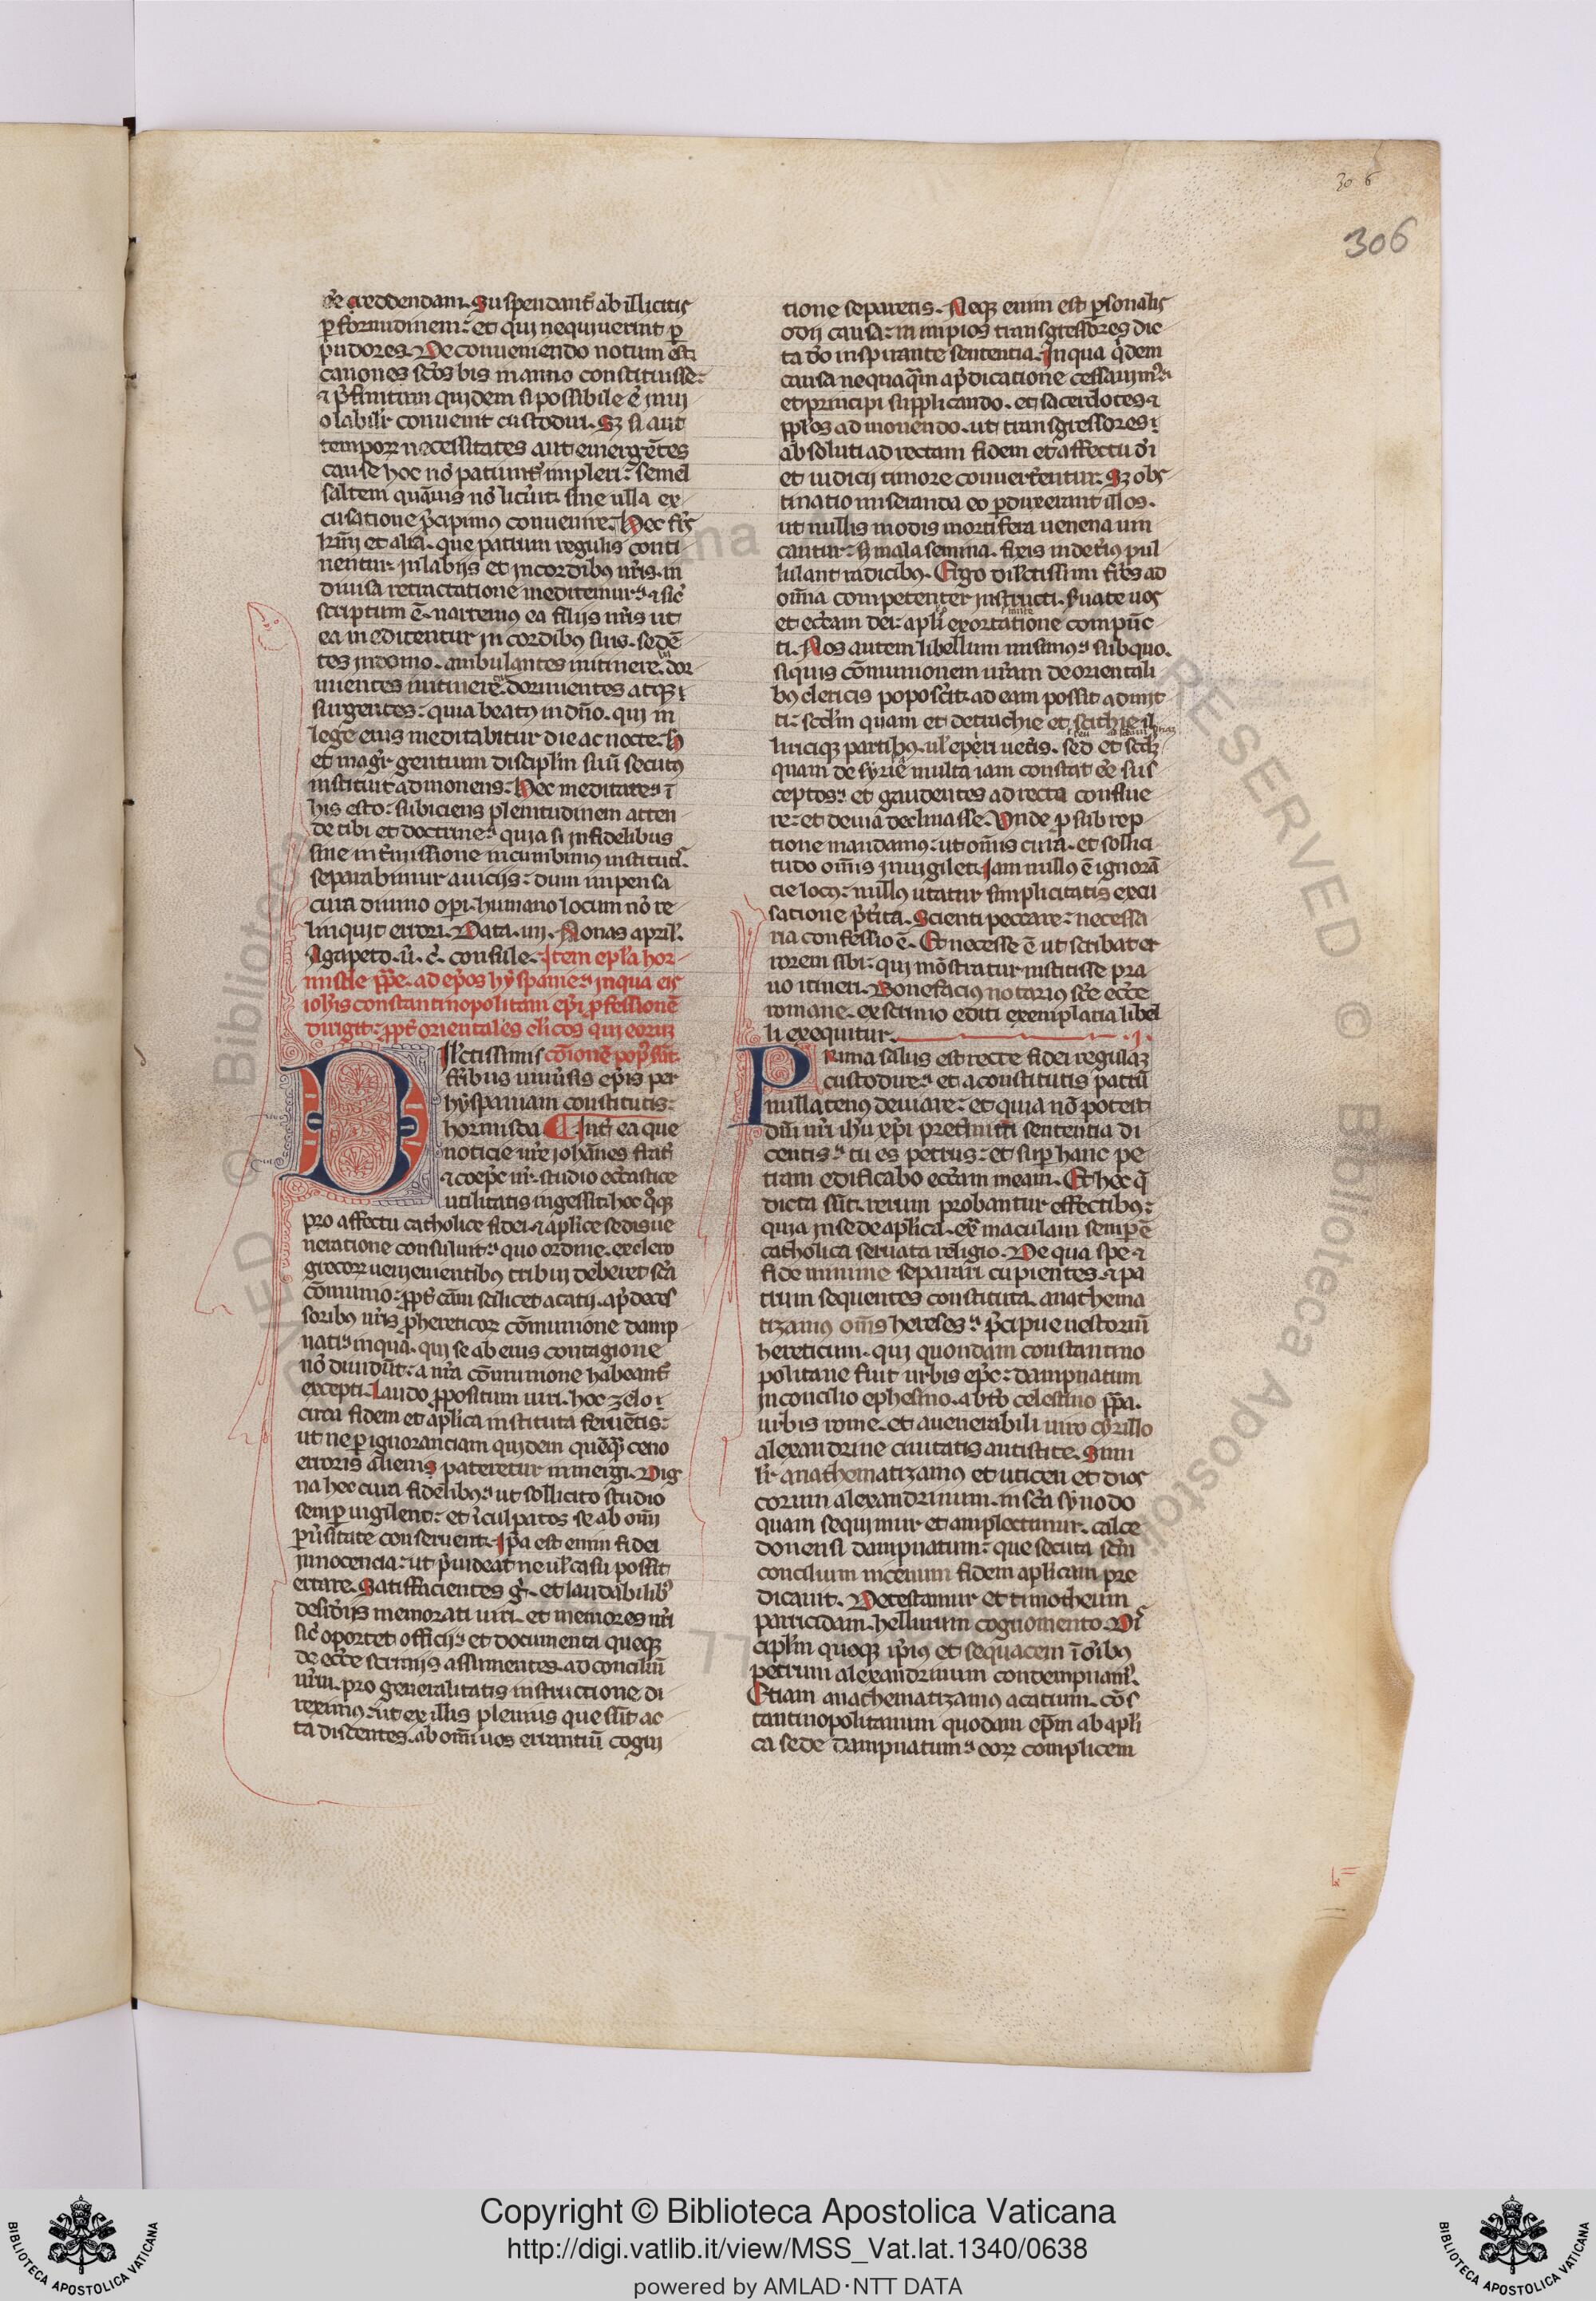 306
306
de creddendam. Suspendant͛ ab illicitis
ꝑ formidinem: et qui nequiuerint ꝑ
pudores. De conueniendo notum est
canones sc̄os bis in anno constituisse:
⁊ p̄finitum quidem si possibile ē inui
olabilit͛ conuenit custodiri. Sꝫ si aut
temporꝝ necessitates aut emergētes
cause hoc nō patiunt͛ impleri: semel
saltem quāuis nō licuit sine ulla ex
cusatione p̄cipimus conuenire. Hec fr̄s
kr̄mi et alia. que patrum regulis conti
nentur in labijs et in cordibꝰ ur̄is. in
diuisa retractatione meditemur ⁊ sic̄
scriptum ē. narremꝰ ea filijs nr̄is ut
ea meditentur in cordibꝰ suis. sedē
tes in domo. ambulantes in itinere. dor
mientes in itinere. dormientes atqꝫ
surgentes: quia beatꝰ in dn̄o. qui in
lege eius meditabitur die ac nocte. H
et magr̄ gentium discipl̄m suū secutꝰ
instituit admonens: Hec meditare ī
his esto: subiciens plenitudinem atten
de tibi et doctrine quia si in fidelibus
sine int͛missione incumbimꝰ institutis
separabimur a uicijs: dum impensa
cura diuino operi humano locum nō re
linquit errori. Data. iiij. Nonas april̄.
Agapeto. u̅. c̅. consule. Item epl̄a hor
misde pp̄e. ad ep̄os hyspanie in qua eis
ioh̄is constantinopolitani ep̄i ꝓfessionē
dirigit: ꝓpt͛ orientales cl̄icos qui eorum
Dil̄ctissimis cōionē pop̄sūt.
fr̄ibus uniu͛sis ep̄is per
hyspaniam constitutis:
hormisda Int͛ ea que
noticie nr̄e ioh̄annes frat͛
⁊ coep̄c nr̄. studio ecc̄astice
utilitatis ingessit hoc qͦqꝫ
pro affectu catholice fidei ⁊ aplice sedis ue
neratione consuluit quo ordine. ex clero
grecorꝝ uenientibus tribui deberet sc̄a
cōmunio: ꝓpt͛ cām scilicet acatij. ap̄deces
soribꝰ nr̄is ꝓ hereticorꝝ cōmunione damp
nati in qua. qui se ab eius contagione
nō diuidūt. a nr̄a cōmunione habeant͛
excepti. Laudo ꝓpositum uiri. hoc zelo
circa fidem et aplica instituta feruētis:
ut ne ꝑ ignoranciam quidem quēqꝫ ceno
erroris alienis pateretur inmergi. Dig
na hec cura fidelibꝰ ut sollicito studio
semꝑ uigilent: et īculpatos se ab omni
ꝑuersitate conseruent. Ip̄a est enim fidei
innocencia: ut p̄uideat ne ul̄ casu possit
errare. Satisfacientes g̊. et laudabilibꝰ
desid͛ijs memorati uiri. et memores nr̄i
sic̄ oportet officij et documenta queqꝫ
de ecc̄e scrinijs assumentes. ad conciliū
ur̄m. pro generalitatis instructione di
reximꝰ: ut ex illis plenius que sūt ac
ta discentes. ab omni uos errantiū cogni
tione separetis. Neqꝫ enim est ꝑsonalis
odij causa: in impios transgressores dic
ta do inspirante sententia. In qua q̄dem
causa nequaq̄m ap̄dicatione cessauimꝰ
et principi supplicando. et sacerdotes ⁊
ppl̄os admonendo. ut transgressores
absoluti ad rectam fidem et affectu di
et iudicij timore conuerterentur. Sꝫ obs
tinatio miseranda eo ꝑduxerant illos.
ut nullis modis mortifera uenena uin
cantur: ꝫ mala semina. fixis in det͛ius pul
lulant radicibꝰ. Ergo dil̄ctissimi fr̄s ad
omīa competenter instructi. seruate uos
et ecc̄am dei: apl̄i exortatione compūc
ti. Nos autem libellum misimus sub quo.
siquis cōmunionem ur̄am de orientali
bꝰ clericis poposcit ad eam possit admit
ti: sedm quam et de trachie et scithie il
liricīqꝫ partibꝰ. ul̄ epiri uet͛is. sed et sedꝫ
quam de syrie multa iam constat eē sus
ceptos et gaudentes ad recta conflue
re: et deuia declinasse. Vnde ꝑ subrep
tione mandamꝰ: ut omīs cura. et sollici
tudo omīs inuigilet. Iam nullꝰ ē ignorā
cie locꝰ: nullꝰ utatur simplicitatis excu
satione p̄t͛ita. Scienti peccare: necessa
ria confessio ē. Et necesse ē ut scribat er
rorem sibi: qui mōstratur institisse pra
uo itineri. Bonefacius notarius sc̄e ecc̄e
romane. ex scrinio editi exemplaria libel
li exequitur.
Prima salus est recte fidei regulaꝫ
custodire et a constitutis patrū
nullatenꝰ deuiare: et quia nō potest
dn̄i nr̄i ihū xp̄i pretermitti sententia di
centis tu es petrus: et suꝑ hanc pe
tram edificabo ecc̄am meam. Et hec q̄
dicta sūt. rerum probantur effectibꝰ:
quia in sede aplica. ext͛ maculam semꝑ ē
catholica seruata religio. De qua spe ⁊
fide minime separari cupientes ⁊ pa
trum sequentes constituta. anathema
tizamꝰ omīs hereses p̄cipue nestoriū
hereticum. qui quondam constantino
politane fuit urbis ep̄c: dampnatum
in concilio ephesino. a bt̄o celestino pp̄a.
urbis rome. et a uenerabili uiro cyrillo
alexandrine ciuitatis antistite. Simi
lit͛ anathematizamꝰ et uticen et dios
corum alexandrinum. in sc̄a synodo
quam sequimur et amplectimur. calce
donensi dampnatum: que secuta sc̄m
concilium nicenum fidem aplicam pre
dicauit. Detestamur et timotheum
parricidam. hellurum cognomento. Dis
cipl̄m quoqꝫ ip̄ius et sequacem ī oībꝰ
petrum alexandrinum condempnamꝰ.
Etiam anathematizamus acatium. cōs
tantinopolitanum quodam ep̄m ab apli
ca sede dampnatum eorꝝ complicem
Copyright © Biblioteca Apostolica Vaticana
http://digi.vatlib.it/view/MSS_Vat.lat.1340/0638
powered by AMLAD·NTT DATA
BIBLIOTECA APOSTOLICA VATICANA
BIBLIOTECA APOSTOLICA VATICANA